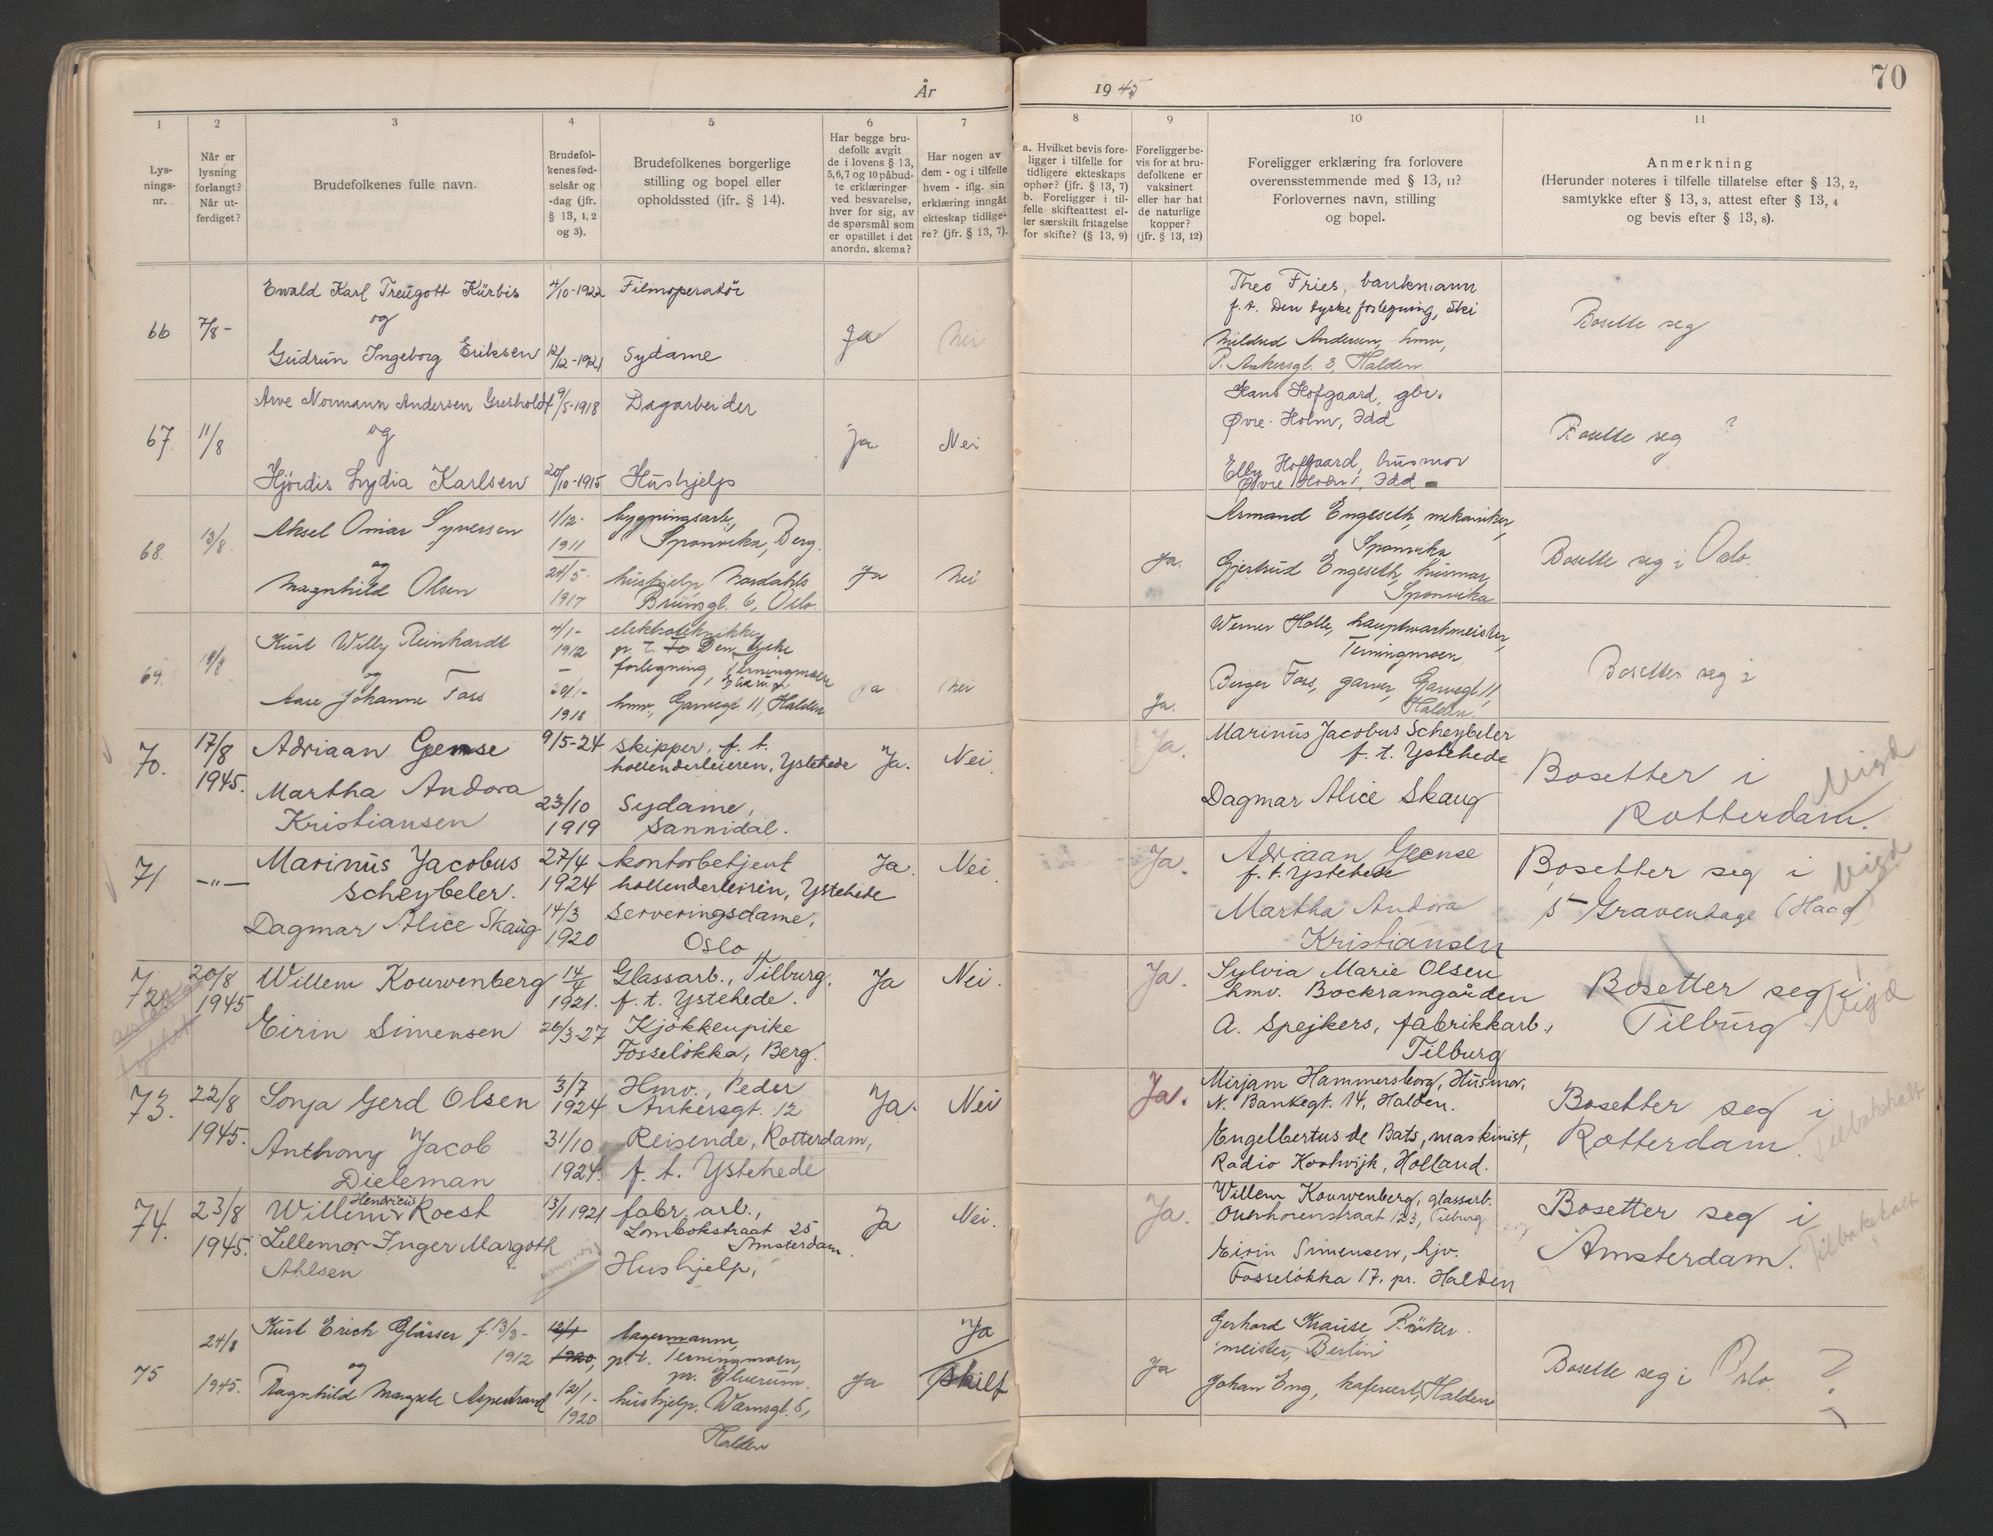 År 1945
70
1
2
3
4
5
6
7
8
9
10
11
Lys-
nings-
nr.
Når er
lysning
forlangt?
Når ut-
ferdiget?
Brudefolkenes fulle navn.
Brudefol-
kenes fød-
selsår og
-dag (jfr.
§ 13, 1, 2
og 3).
Brudefolkenes borgerlige
stilling og bopel eller
opholdssted (ifr. § 14).
Har begge bru-
defolk avgit
de i lovens § 13,
5,6,7 og 10 påbud-
te erklæringer
ved besvarelse,
hver for sig, av
de spørsmål som
er opstillet i det
anordn. skema?
Har nogen av
dem - og i tilfelle
hvem - iflg. sin
erklæring inngått
ekteskap tidlige-
re? (jfr. § 13, 7).
a. Hvilket bevis fore-
ligger i tilfelle for
tidligere ekteskaps
ophør? (jfr. § 13, 7)
b. Foreligger i til-
felle skifteattest el-
ler særskilt fritagelse
for skifte? (§ 13, 9)
Foreligger be-
vis for at bru-
defolkene er
vaksinert
eller har hat
de naturlige
kopper?
(jfr. § 13, 12)
Foreligger erklæring fra forlovere
overensstemmende med § 13, 11?
Forlovernes navn, stilling
og bopel.
Anmerkning
(Herunder noteres i tilfelle tillatelse efter § 13, 2,
samtykke efter § 13, 3, attest efter § 13, 4
og bevis efter § 13, 8).
66
7/8-
Ewald Karl Treugott Kürbis
og
Gudrun Ingeborg Eriksen
4/10-1922
12/12-1921
Filmoperatör
Sydame
Ja
Nei
Theo Fries, bankmann
f.t. Den tyske forlegning, Ski
Mildrid Andersen, hmv,
P. Ankersgt. 3, Halden
Bosette seg
67.
11/8
Arve Normann Andersen Gresholdt
og
Hjördis Lydia Karlsen
9/5-1918
20/10-1915
Dagarbeider
Hushjelp
Ja
Nei
Hans Hofgaard, gbr.
Øvre Holm, Idd
Elly Hofgaard, husmor
Øvre Holm, Idd
Bosette seg ?
68.
13/8.
Aksel Omar Syversen
og
Magnhild Olsen
1/12-
1911
24/5-
1917
bygningsarb,
Sponvika, Berg.
hushjelp, Nordahls
Brunsgt. 6, Oslo
Ja
Nei
Ja.
Armand Engeseth, mekaniker,
Sponvika
Gjertrud Engeseth, husmor,
Sponvika
Bosette seg i Oslo.
69.
Kurt Willy Reinhardt
og
Aase Johanne Foss
4/1-
1912
30/1-
1918
elektrotekniker
p.t. Den tyske
forlegning, Terningmoen
hmv., Garvegt 11, Halden
Ja
Nei
Ja.
Werner Holle, hauptwachmeister,
Terningmoen
Birger Foss, garver, Garvegt 11
Halden.
Bosetter seg i
70.
17/8
1945.
Adriaan Geense
Martha Andora
Kristiansen
9/5-24
23/10
1919
skipper, f. t.
hollenderleieren, Ystehede
Sydame,
Sannidal.
Ja.
Nei.
Ja.
Marinus Jacobus Scheybeler
f. t. Ystehede
Dagmar Alice Skaug
Bosetter i
Rotterdam.
Vigd
71
—"—
Marinus Jacobus
Scheybeler.
Dagmar Alice Skaug
27/4
1924
14/3
1920
kontorbetjent
hollenderleiren, Ystehede
Serveringsdame,
Oslo
Ja.
Nei.
Ja.
Adriaan Geense
f. t. Ystehede
Martha Andora
Kristiansen
Bosetter seg i
s Gravenhage (Haag)
Vigd
72.
20/8
1945
Willem Kouwenberg
Eirin Simensen
14/4
1921.
26/3-27
Glassarb., Tilburg.
f. t. Ystehede.
Kjökkenpike
Fosselökka, Berg.
Ja
Nei.
Ja.
Sylvia Marie Olsen
hmv. Bockramgården
A. Spejkers, fabrikkarb.,
Tilburg
Bosetter seg i
Tilburg.
Vigd
73.
22/8
1945.
Sonja Gerd Olsen
Anthony Jacob
Dieleman
3/7
1924
31/10
1924.
Hmv., Peder
Ankersgt. 12
Reisende, Rotterdam,
f. t. Ystehede
Ja.
Nei
Ja.
Mirjam Hammersborg, Husmor,
N. Bankegt. 14, Halden.
Engelbertus de Bats, maskinist,
Radio Kootwijk, Holland.
Bosetter seg i
Rotterdam.
Tilbakekalt
74.
23/8
1945.
Willem Hendricus Roest
Lillemor Inger Margoth
Ahlsen
13/1 1921
fabr. arb.,
Lombokstraat 25
Amsterdam.
Hushjelp,
Ja
Nei.
Ja.
Willem Kouwenberg, glassarb.
Ouerhovenstraat 123, Tilburg
Eirin Simensen, hjv.
Fosselökka 17. pr. Halden
Bosetter seg i
Amsterdam.
Tilbakekalt
75
24/8
1945.
Kurt Erich Glässer f. 13/3-
1912
og
Ragnhild Margrete Aspestrand
12/1
1920,
12/1-
1920
lagermann,
p.t. Terningmoen,
pr. Elverum.
hushjelp, Warnsgt. 8,
Halden
Ja
Ja
Skilt
Ja
Gerhard Krause
meister, Berlin
Johan Eng, kafevert, Halden
Bosette seg i Oslo ?